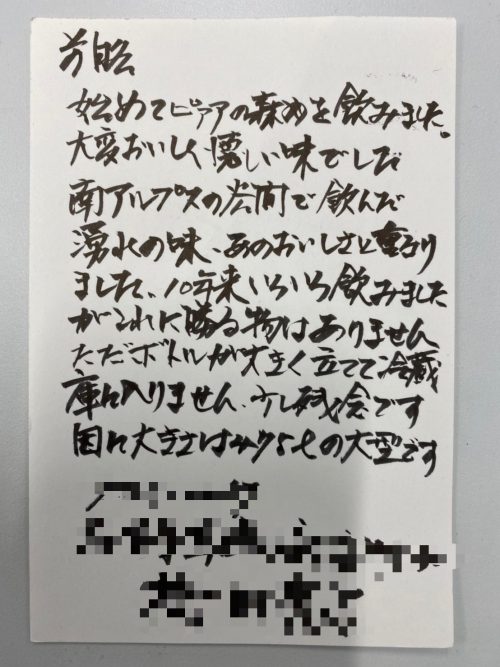 前略
始めてピュアの森水を飲みました。
大変おいしく懐しい味でした
南アルプスの谷間で飲んだ
湧水の味、あのおいしさと重なり
ました、10年来いろいろ飲みました
がこれに勝る物はありません
ただボトルが大きく立てて冷蔵
庫に入りません、少し残念です
因に大きさは475ℓの大型です